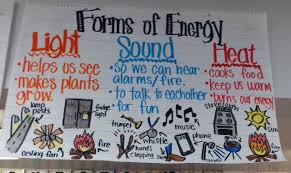 Forms of Energy
Light
• helps us see
• makes plants
grow.
lamp
posts
fridge
light
ceiling fan
fire
Sound
• so we can hear
alarms/fire.
• to talk to eachother
• for fun
trumpet
whistle
hands
clapping
music
phone
Heat
• cooks food
• keep us warm
• burns our energy
fire